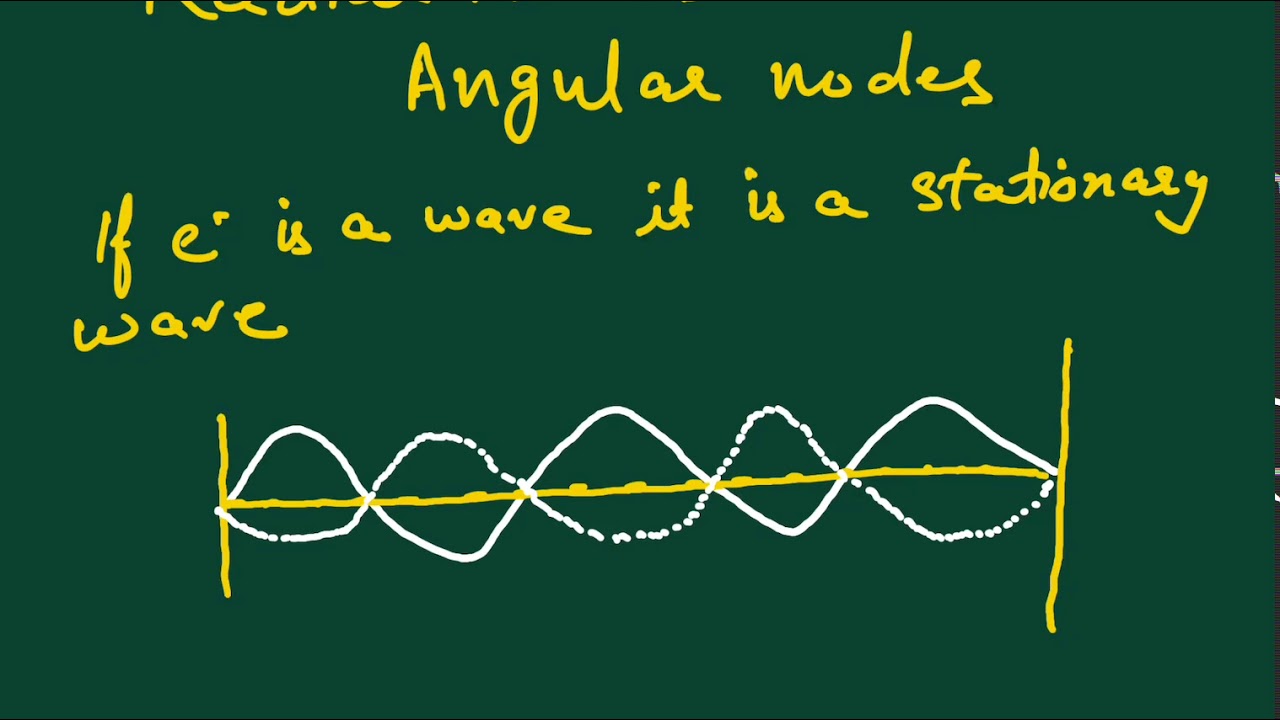 Angular nodes
If e⁻ is a wave it is a stationary
wave